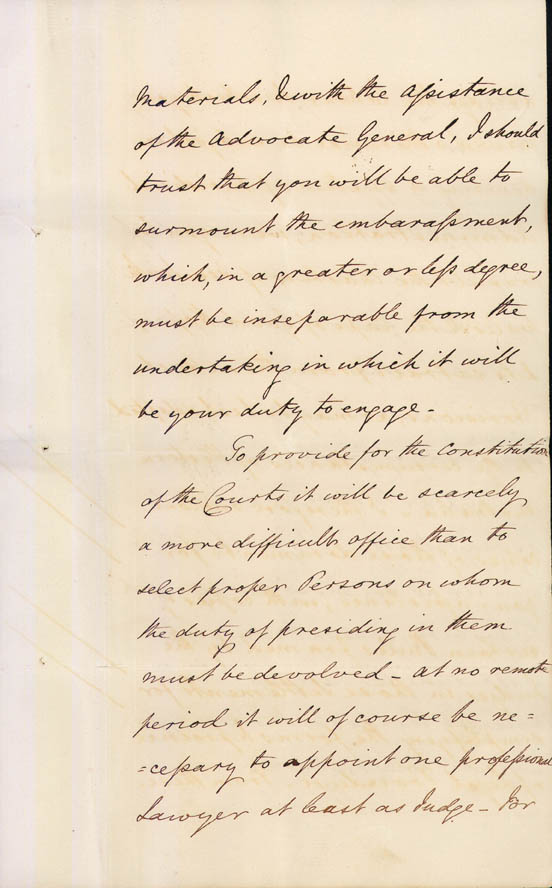 Materials, & with the Assistance
of the Advocate General, I should
trust that you will be able to
surmount the embarassment,
which, in a greater or less degree,
must be inseparable from the
undertaking in which it will
be your duty to engage -
To provide for the Constitution
of the Courts it will be scarcely
a more difficult office than to
select proper Persons on whom
the duty of presiding in them
must be devolved - at no remote
period it will of course be ne=
=cessary to appoint one professional
Lawyer at least as Judge - For